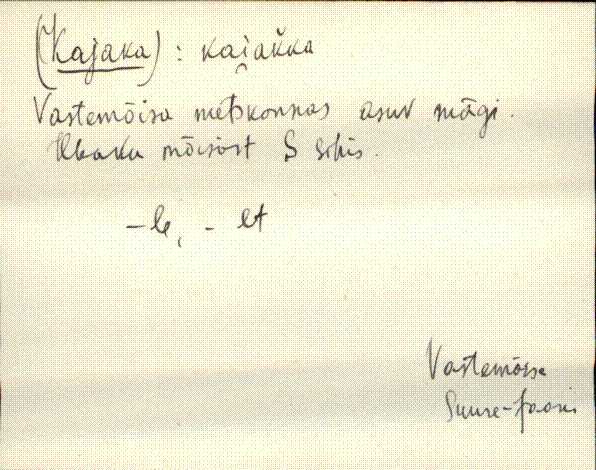 (Kajaka) : kai̯ak̆ka
Vastemõisa metskonnas asuv mägi.
mõisast S sihis.
-le, - lt
Vastemõisa
Suure-Jaani